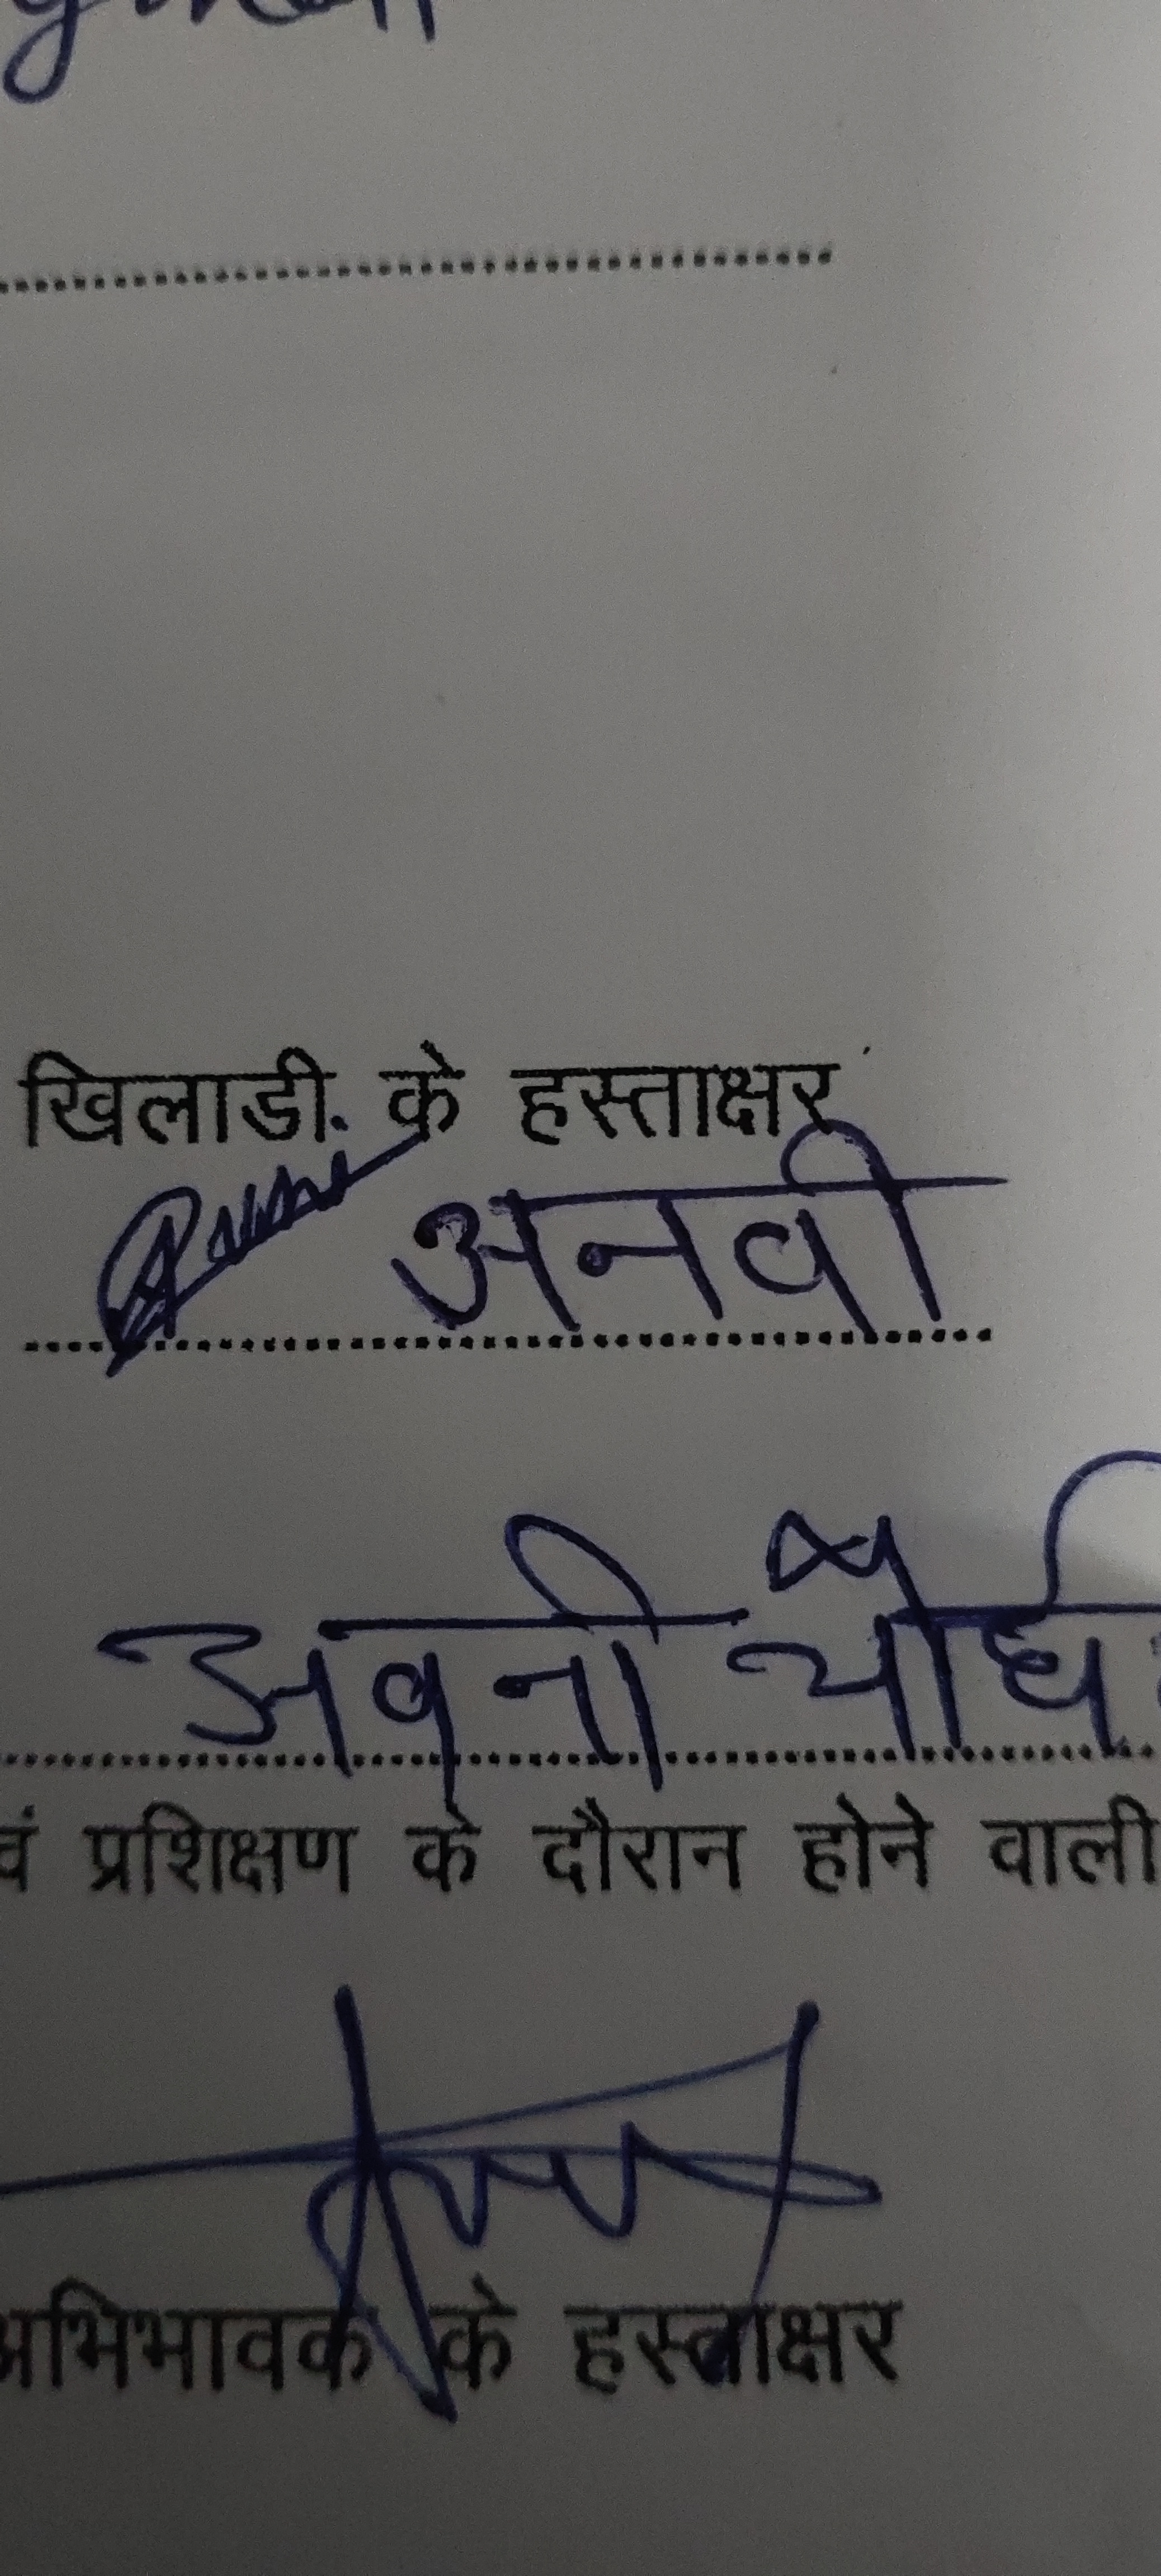 खिलाडी के हस्ताक्षर
अनवी
अवनी चौध
वं प्रशिक्षण के दौरान होने वाली
अभिभावक के हस्ताक्षर